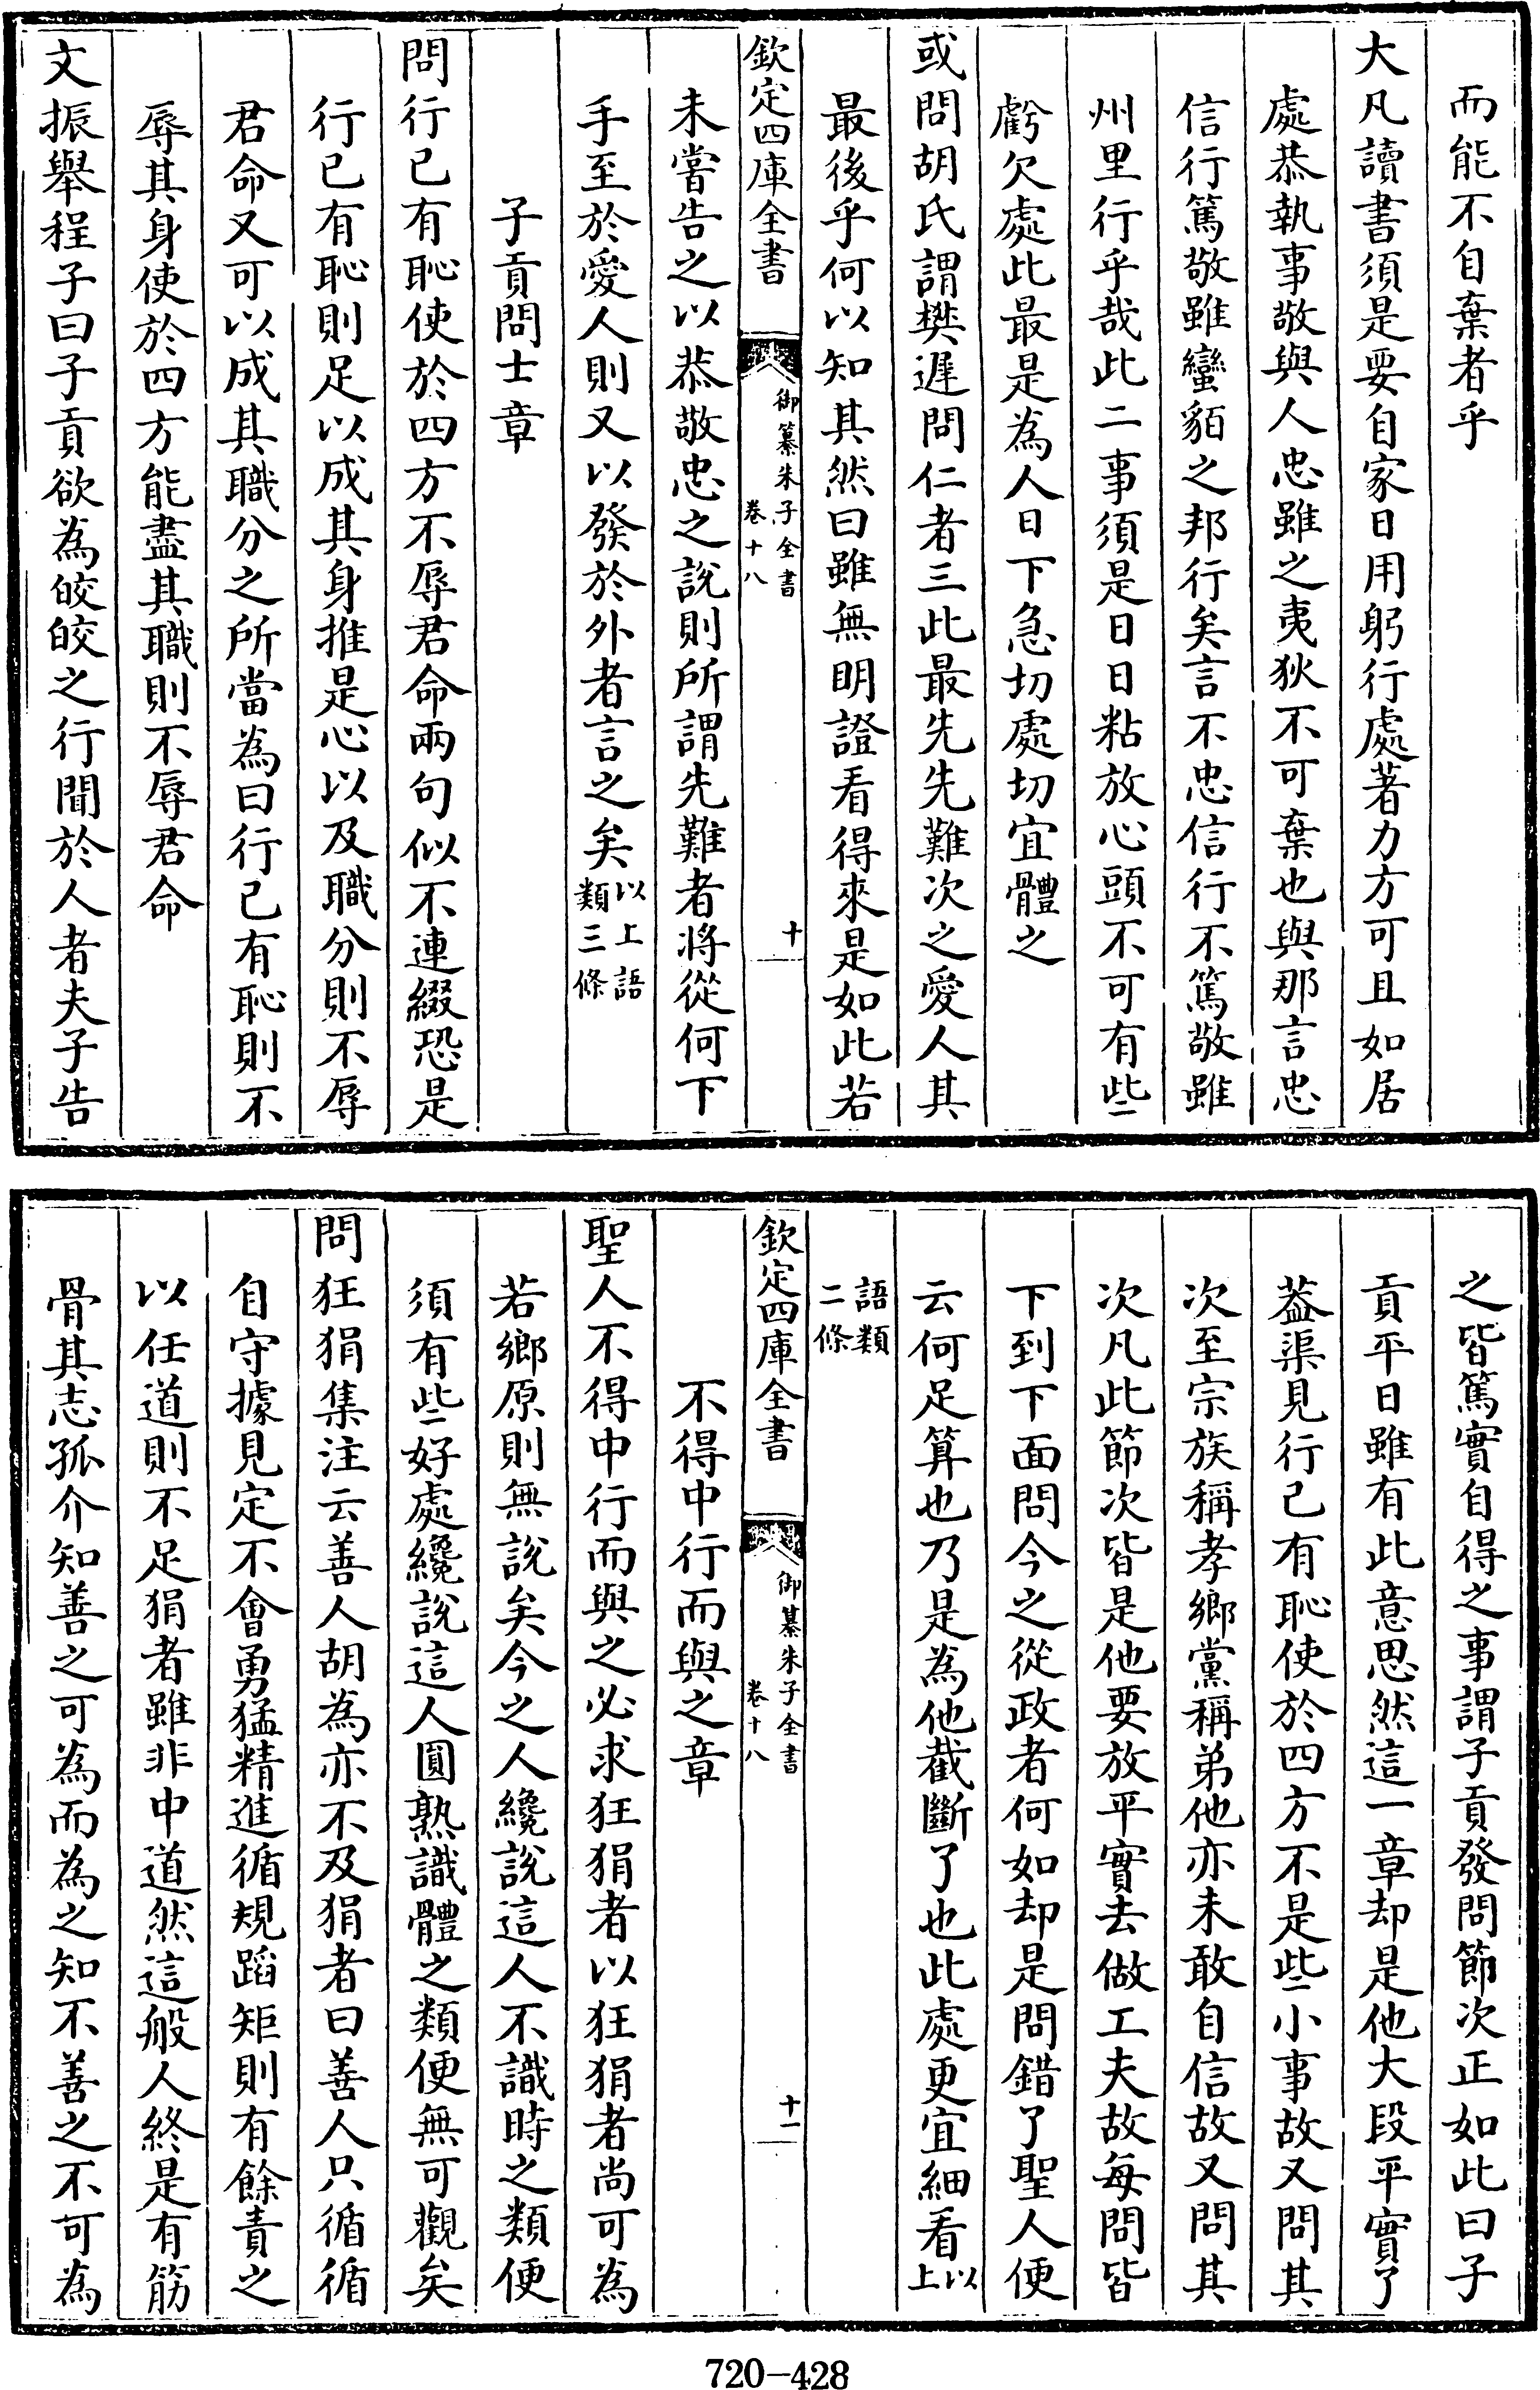 而能不自棄者乎
大凡讀書須是要自家日用躬行處著力方可且如居
處恭執事敬與人忠雖之夷狄不可棄也與那言忠
信行篤敬雖蠻貊之邦行矣言不忠信行不篤敬雖
州里行乎哉此二事須是日日粘放心頭不可有些
虧欠處此最是為人日下急切處切宜體之
或問胡氏謂樊遲問仁者三此最先先難次之愛人其
最後乎何以知其然曰雖無明證看得來是如此若
欽定四庫全書
御纂朱子全書
卷十八
十
未嘗告之以恭敬忠之說則所謂先難者將從何下
手至於愛人則又以發於外者言之矣以上語
類三條
子貢問士章
問行已有恥使於四方不辱君命兩句似不連綴恐是
行已有恥則足以成其身推是心以及職分則不辱
君命又可以成其職分之所當為曰行己有恥則不
辱其身使於四方能盡其職則不辱君命
文振舉程子曰子貢欲為皎皎之行聞於人者夫子告
之皆篤實自得之事謂子貢發問節次正如此曰子
貢平日雖有此意思然這一章却是他大段平實了
葢渠見行己有恥使於四方不是些小事故又問其
次至宗族稱孝鄉黨稱弟他亦未敢自信故又問其
次凡此節次皆是他要放平實去做工夫故每問皆
下到下面問今之從政者何如却是問錯了聖人便
云何足算也乃是為他截斷了也此處更宜細看以
上
語類
二條
欽定四庫全書
御纂朱子全書
卷十八
十一
不得中行而與之章
聖人不得中行而與之必求狂狷者以狂狷者尚可為
若鄉原則無說矣今之人纔說這人不識時之類便
須有些好處纔說這人圓熟識體之類便無可觀矣
問狂狷集注云善人胡為亦不及狷者曰善人只循循
自守據見定不會勇猛精進循規蹈矩則有餘責之
以任道則不足狷者雖非中道然這般人終是有筋
骨其志孤介知善之可為而為之知不善之不可為
720-428